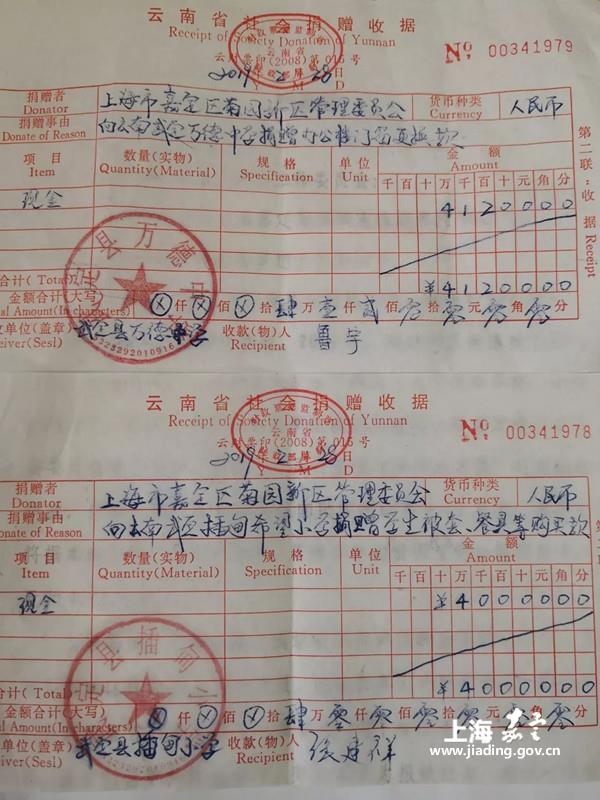 云南省社会捐赠收据
Receipt of Society Donation of Yunnan
云财票印(2008)第015号
No. 00341979
2019 Y 2 M 28 D
年 月 日
捐赠者 上海市嘉定区菊园新区管理委员会 货币种类 人民币
Donator Currency
捐赠事由 向云南武定万德中学捐赠办公楼门窗 款
Donate of Reason
项目 数量(实物) 规格 单位 金额
Item Quantity(Material) Specification Unit Amount
千百十万千百十元角分
现金 4120000
合计( Total) ¥4120000
金额合计(大写) ⊗仟⊗佰⊗拾肆万壹仟贰佰零拾零元零角零分
al Amount(In characters)
收单位(盖章) 武定县万德中学 收款(物)人 鲁宇
ceiver(Sesl) Recipient
第二联:收据 Receipt
云南省社会捐赠收据
Receipt of Society Donation of Yunnan
云财票印(2008)第015号
No. 00341978
2019 Y 2 M 28 D
年 月 日
捐赠者 上海市嘉定区菊园新区管理委员会 货币种类 人民币
Donator Currency
捐赠事由 向云南武定插甸希望小学捐赠学生被套、餐具等购买款
Donate of Reason
项目 数量(实物) 规格 单位 金额
Item Quantity(Material) Specification Unit Amount
千百十万千百十元角分
现金 ¥4000000
合计( Total) ¥4000000
金额合计(大写) ⊗仟⊗佰⊗拾肆万零仟零佰零拾零元零角零分
al Amount(In characters)
单位(盖章) 武定县插甸小学 收款(物)人 张建祥
ceiver(Sesl) Recipient
上海嘉定
www.jiading.gov.cn